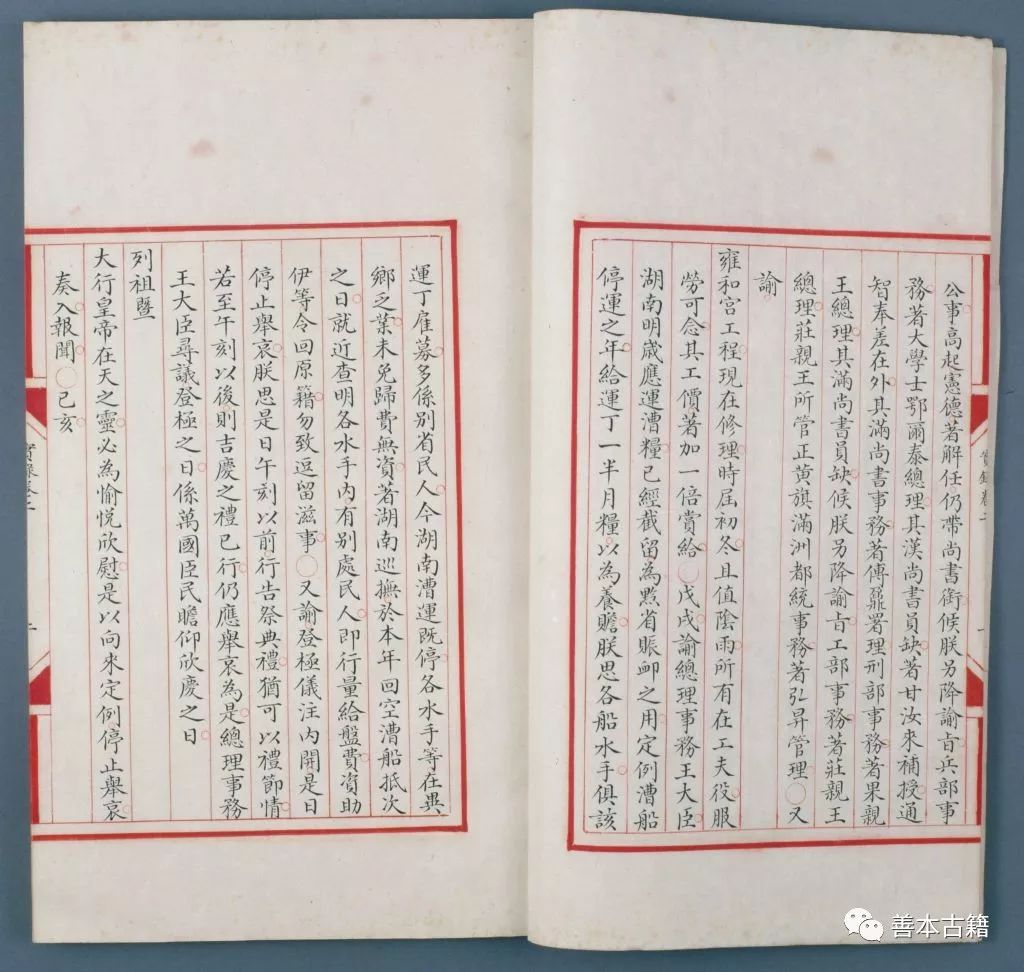 公事高起憲德著解任仍帶尚書銜候朕另降諭旨兵部事
務著大學士鄂爾泰總理其漢尚書員缺著甘汝來補授通
智奉差在外其滿尚書事務著傅鼐署理刑部事務著果親
王總理其滿尚書員缺候朕另降諭旨工部事務著莊親王
總理莊親王所管正黃旗滿洲都統事務著弘昇管理○又
諭
雍和宮工程現在修理時屆初冬且值陰雨所有在工夫役服
勞可念其工價著加一倍賞給○戊戌諭總理事務王大臣
湖南明歲應運漕糧已經截留為黔省賑卹之用定例漕船
停運之年給運丁一半月糧以為養贍朕思各船水手俱該
運丁雇募多係別省民人今湖南漕運既停各水手等在異
鄉乏業未免歸費無資著湖南巡撫於本年回空漕船抵次
之日就近查明各水手內有別處民人即行量給盤費資助
伊等令回原籍勿致逗留滋事○又諭登極儀注內開是日
停止舉哀朕思是日午刻以前行告祭典禮猶可以禮節情
若至午刻以後則吉慶之禮已行仍應舉哀為是總理事務
王大臣尋議登極之日係萬國臣民瞻仰欣慶之日
列祖暨
大行皇帝在天之靈必為愉悅欣慰是以向來定例停止舉哀
奏入報聞○己亥
實錄卷二
實錄卷二
善本古籍